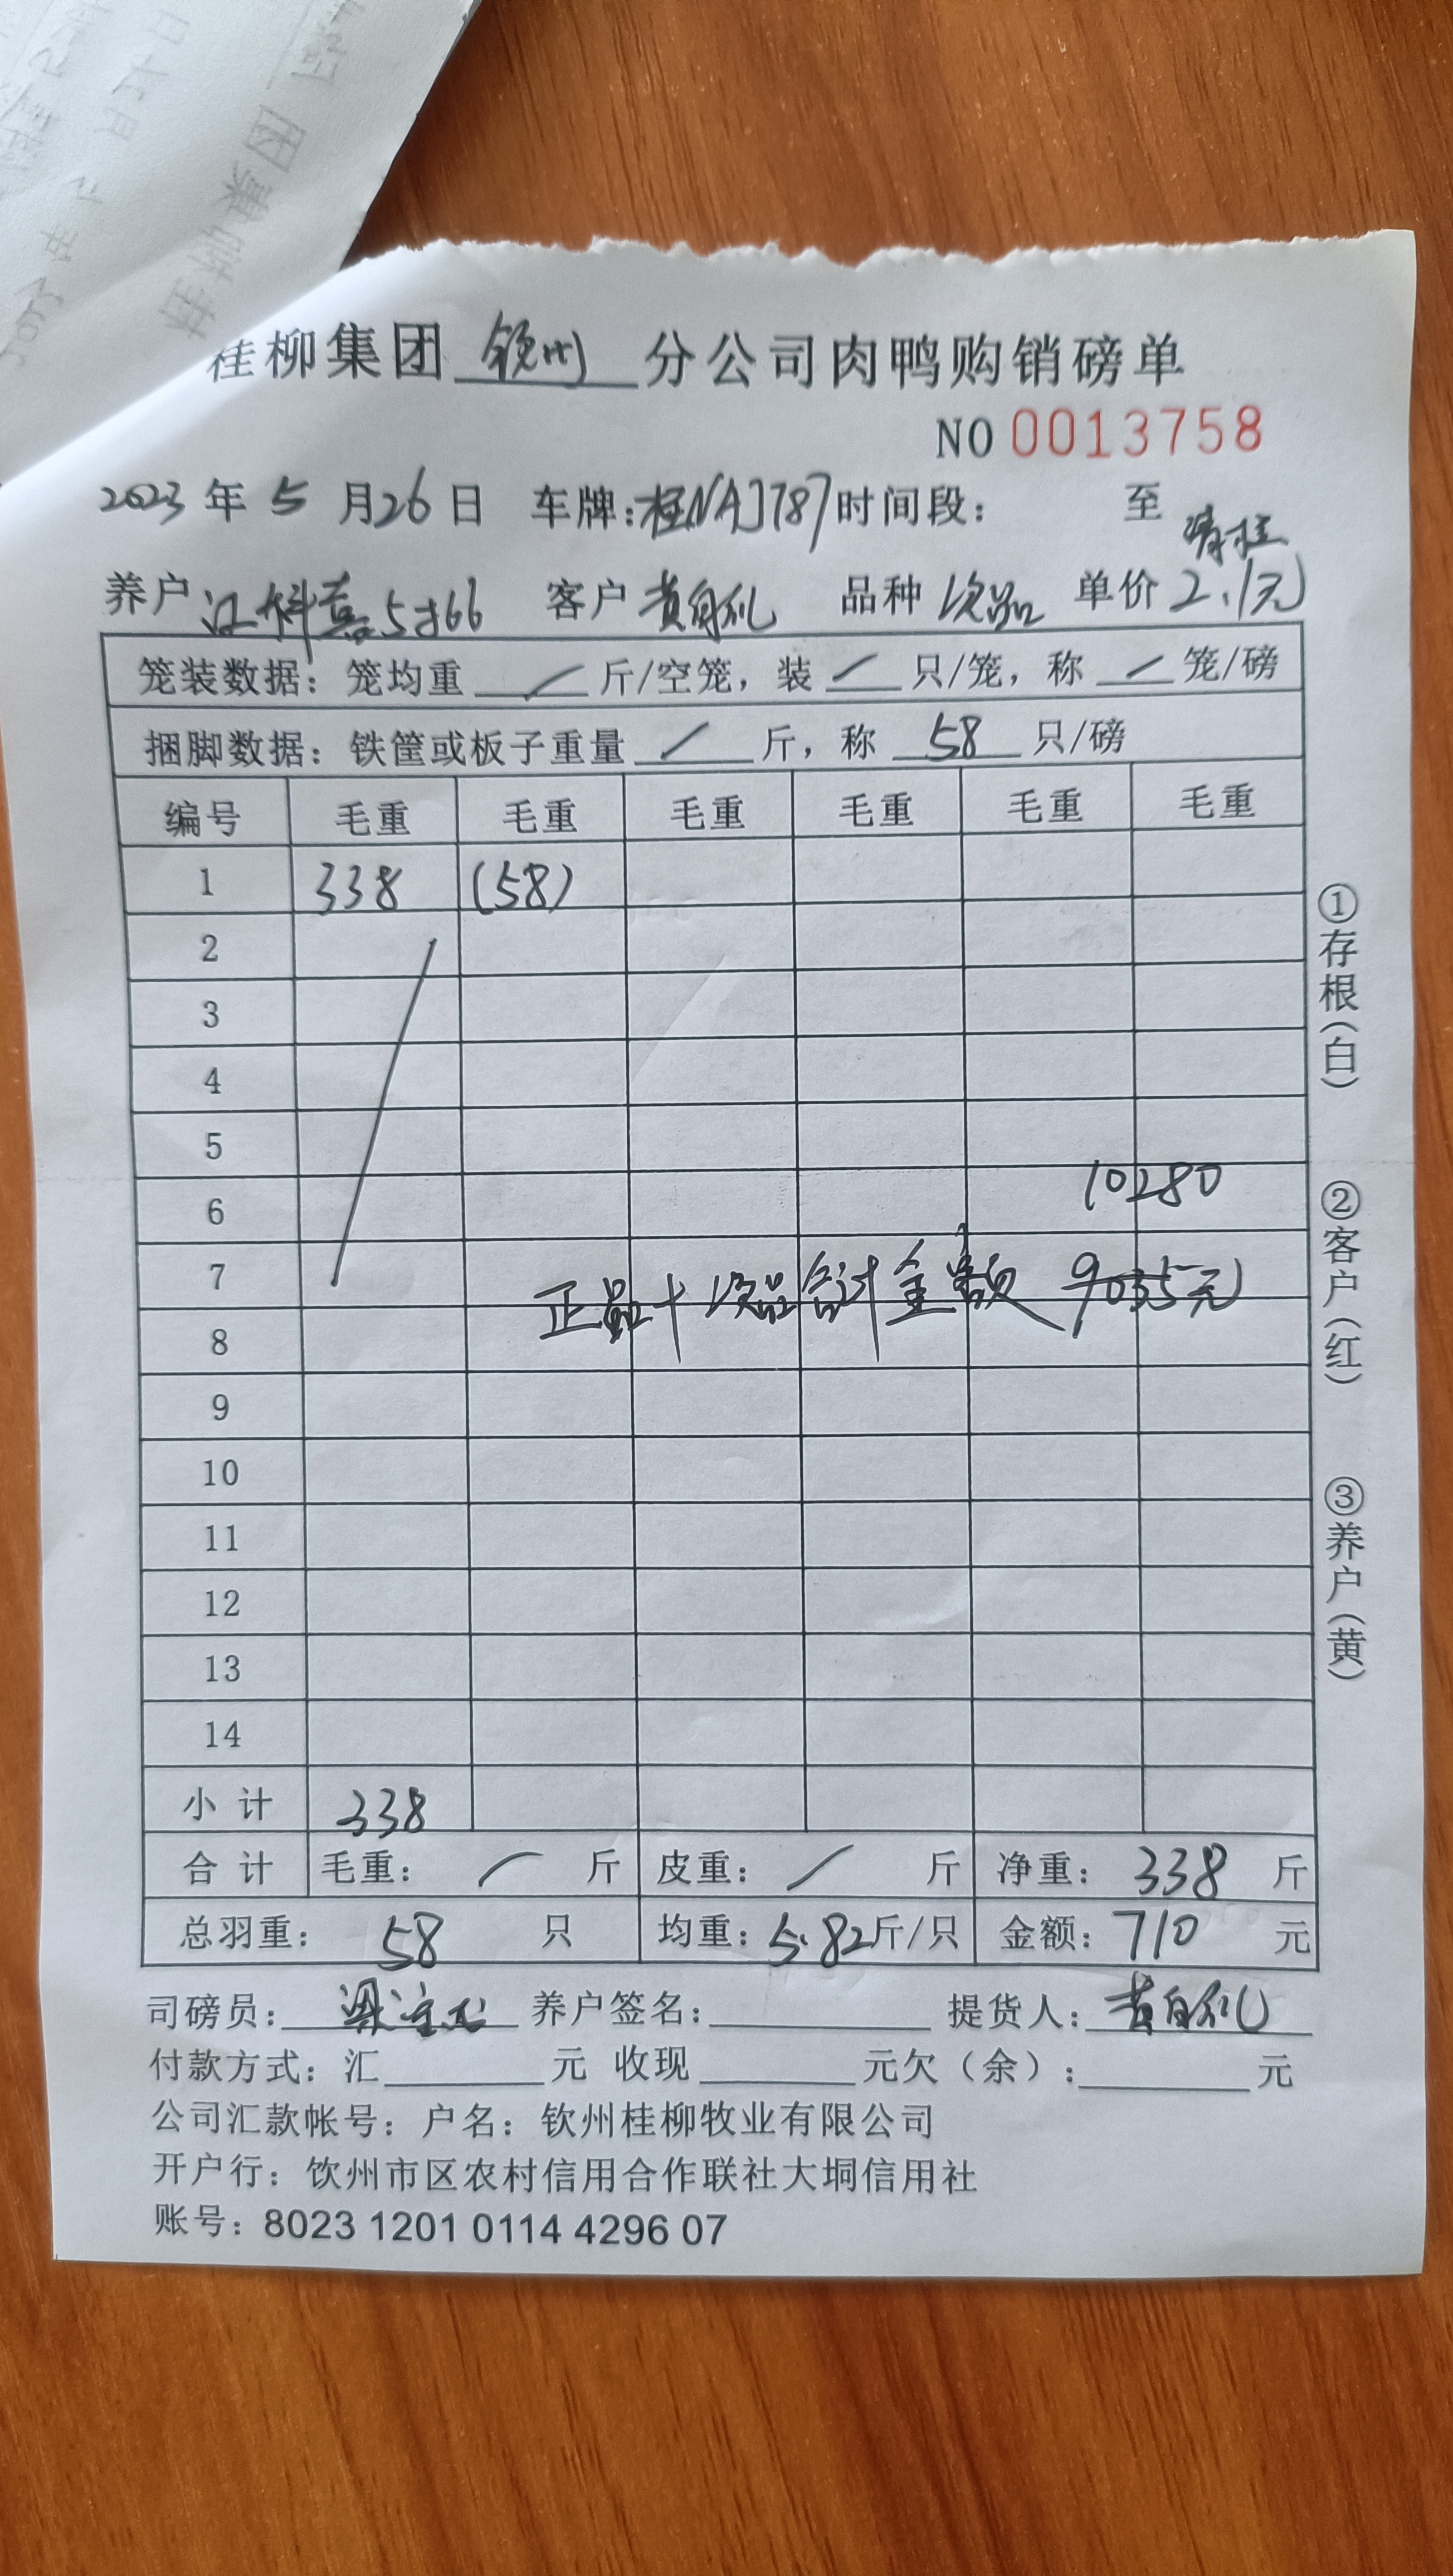 桂柳集团 钦州 分公司肉鸭购销磅单
NO 0013758
2023 年 5 月 26 日 车牌：桂NAJ787 时间段： 至
清栏
养户 江 喜 5±66 客户 黄自礼 品种 次品 单价 2.1元
笼装数据：笼均重 / 斤/空笼，装 / 只/笼，称 / 笼/磅
捆脚数据：铁筐或板子重量 / 斤，称 58 只/磅
编号 毛重 毛重 毛重 毛重 毛重 毛重
1 338 (58)
2
3
4
5
6 10280
7 正品十次品合计金额 9035元
8
9
10
11
12
13
14
小计 338
合计 毛重： / 斤 皮重： / 斤 净重： 338 斤
总羽重： 58 只 均重： 5.82 斤/只 金额： 710 元
司磅员： 梁 养户签名： 提货人： 黄自礼
付款方式：汇 元 收现 元欠（余）： 元
公司汇款帐号：户名：钦州桂柳牧业有限公司
开户行：饮州市区农村信用合作联社大垌信用社
账号：8023 1201 0114 4296 07
①存根（白）
②客户（红）
③养户（黄）